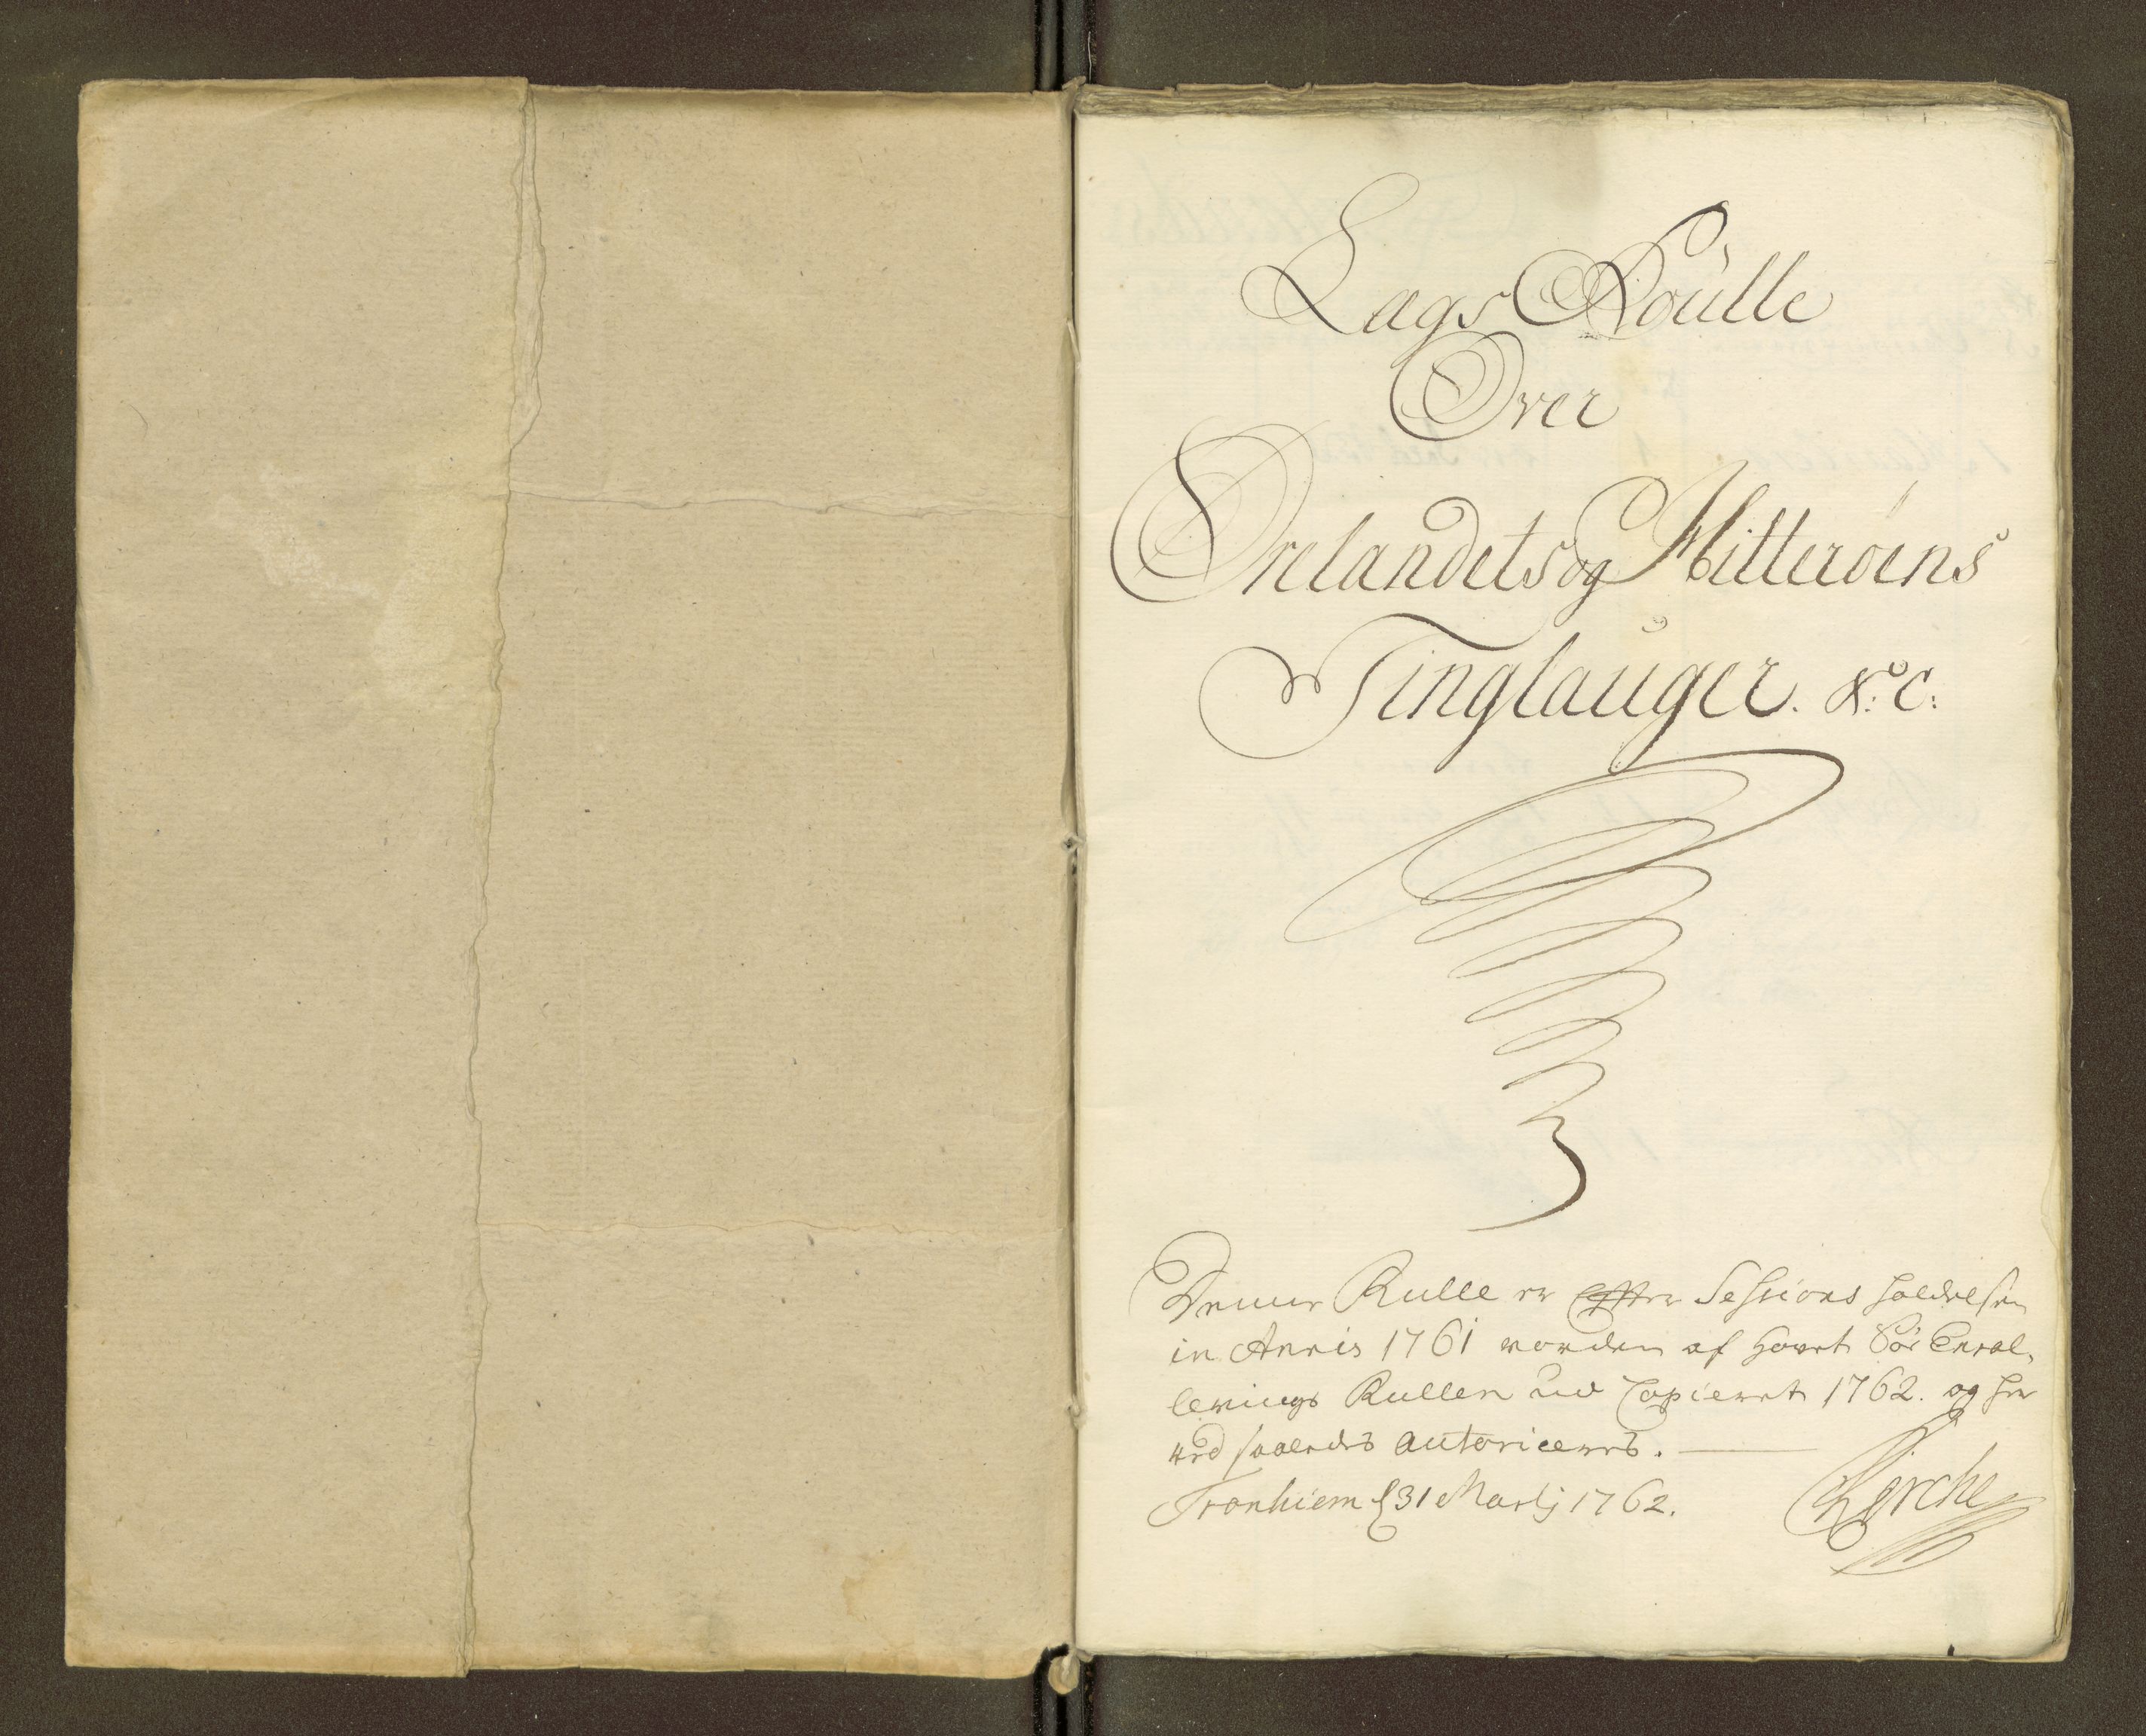 Lags Roulle
Over
Ørelandets og Hitterøens
Tinglauger. &c:
Denne Rulle er efter Sessions holdelsen
in Annis 1761 worden af Hovet Søe Enrol-
lerings Rullen ud Copieret 1762. og her
ved saaledes autoriceres.
Tronhiem d 31 Martij 1762.
Lerche